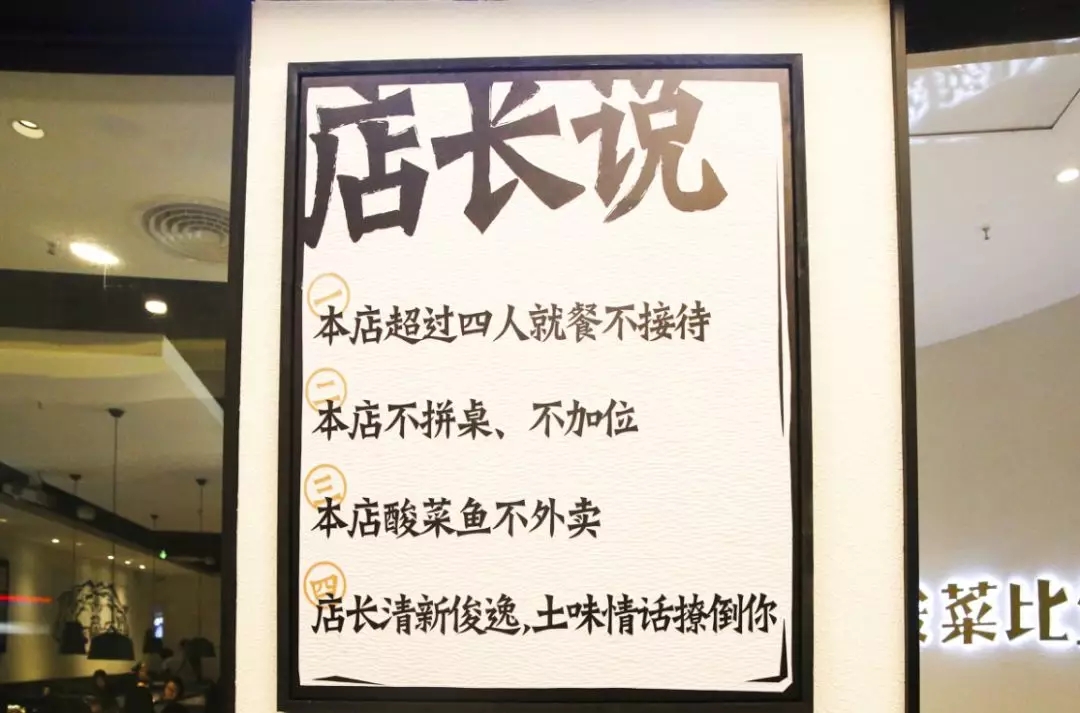 店长说
一
本店超过四人就餐不接待
二
本店不拼桌、不加位
三
本店酸菜鱼不外卖
四
店长清新俊逸,土味情话撩倒你
菜比